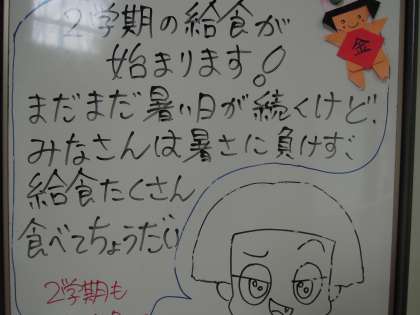 2学期の給食が
始まります。!
まだまだ暑い日が続くけど、
みなさんは暑さに負けず、
給食たくさん
食べてちょうだい
2学期も
金